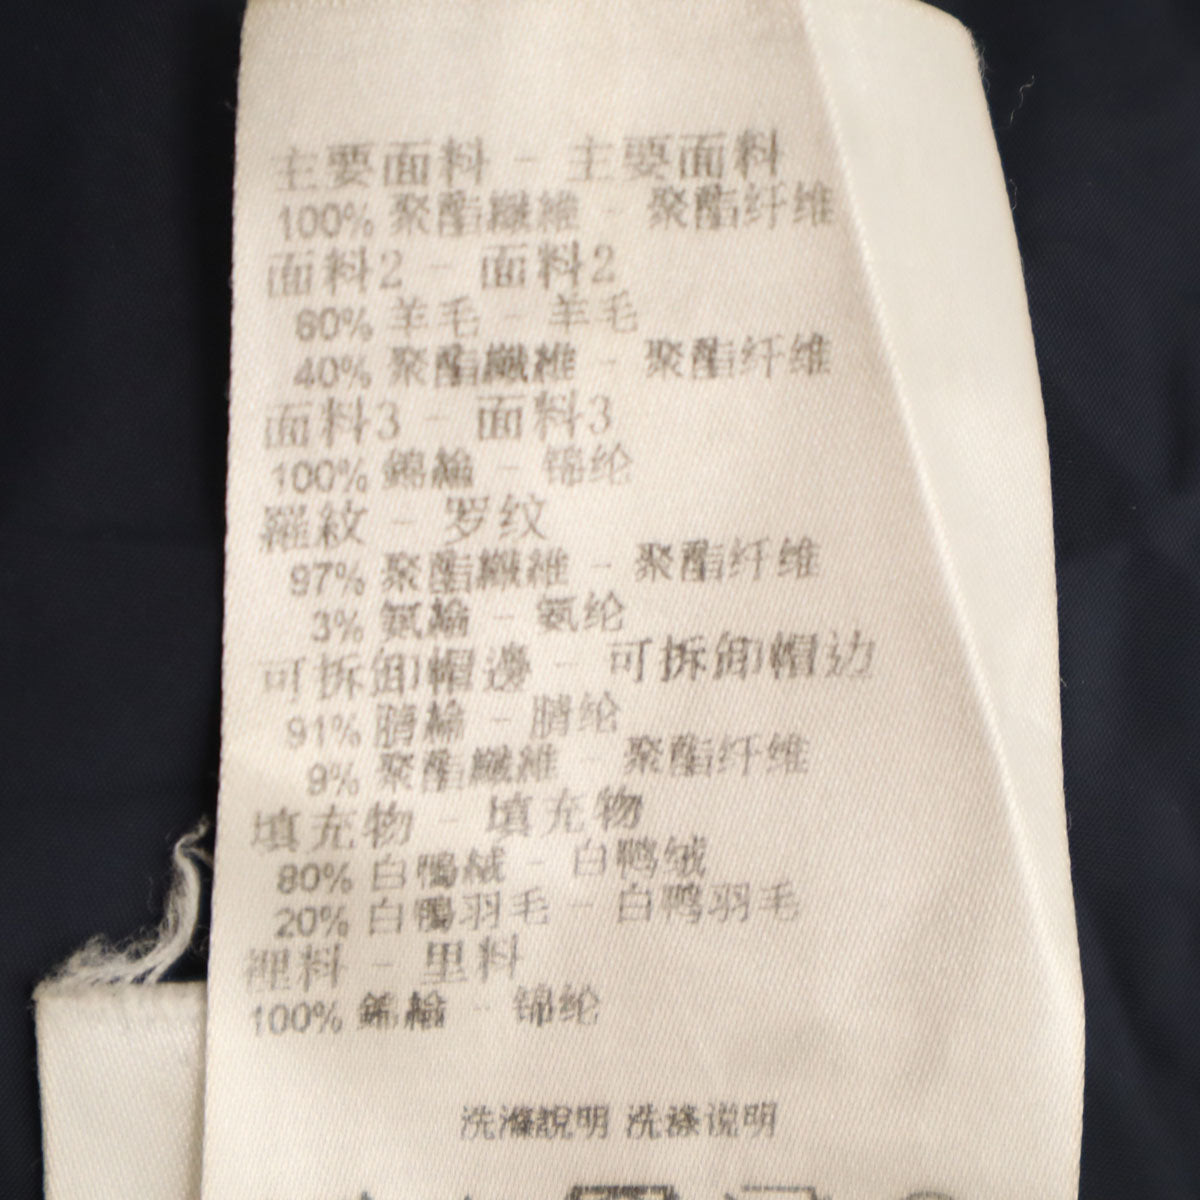 主要面料 - 主要面料
100% 聚酯纖維 - 聚酯纤维
面料2 - 面料2
60% 羊毛 - 羊毛
40% 聚酯纖維 - 聚酯纤维
面料3 - 面料3
100% 錦綸 - 锦纶
羅紋 - 罗纹
97% 聚酯纖維 - 聚酯纤维
3% 氨綸 - 氨纶
可拆卸帽邊 - 可拆卸帽边
91% 腈綸 - 腈纶
9% 聚酯纖維 - 聚酯纤维
填充物 - 填充物
80% 白鴨絨 - 白鸭绒
20% 白鴨羽毛 - 白鸭羽毛
裡料 - 里料
100% 錦綸 - 锦纶
洗滌說明 洗涤说明